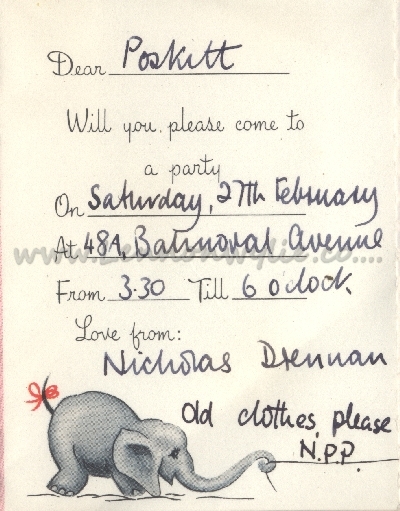 Dear Poskitt
Will you please come to
a party
On Saturday, 27th February
At 48A, Balmoral Avenue
From 3.30 Till 6 o'clock.
Love from:
Nicholas Drennan
Old clothes please
N.P.P.